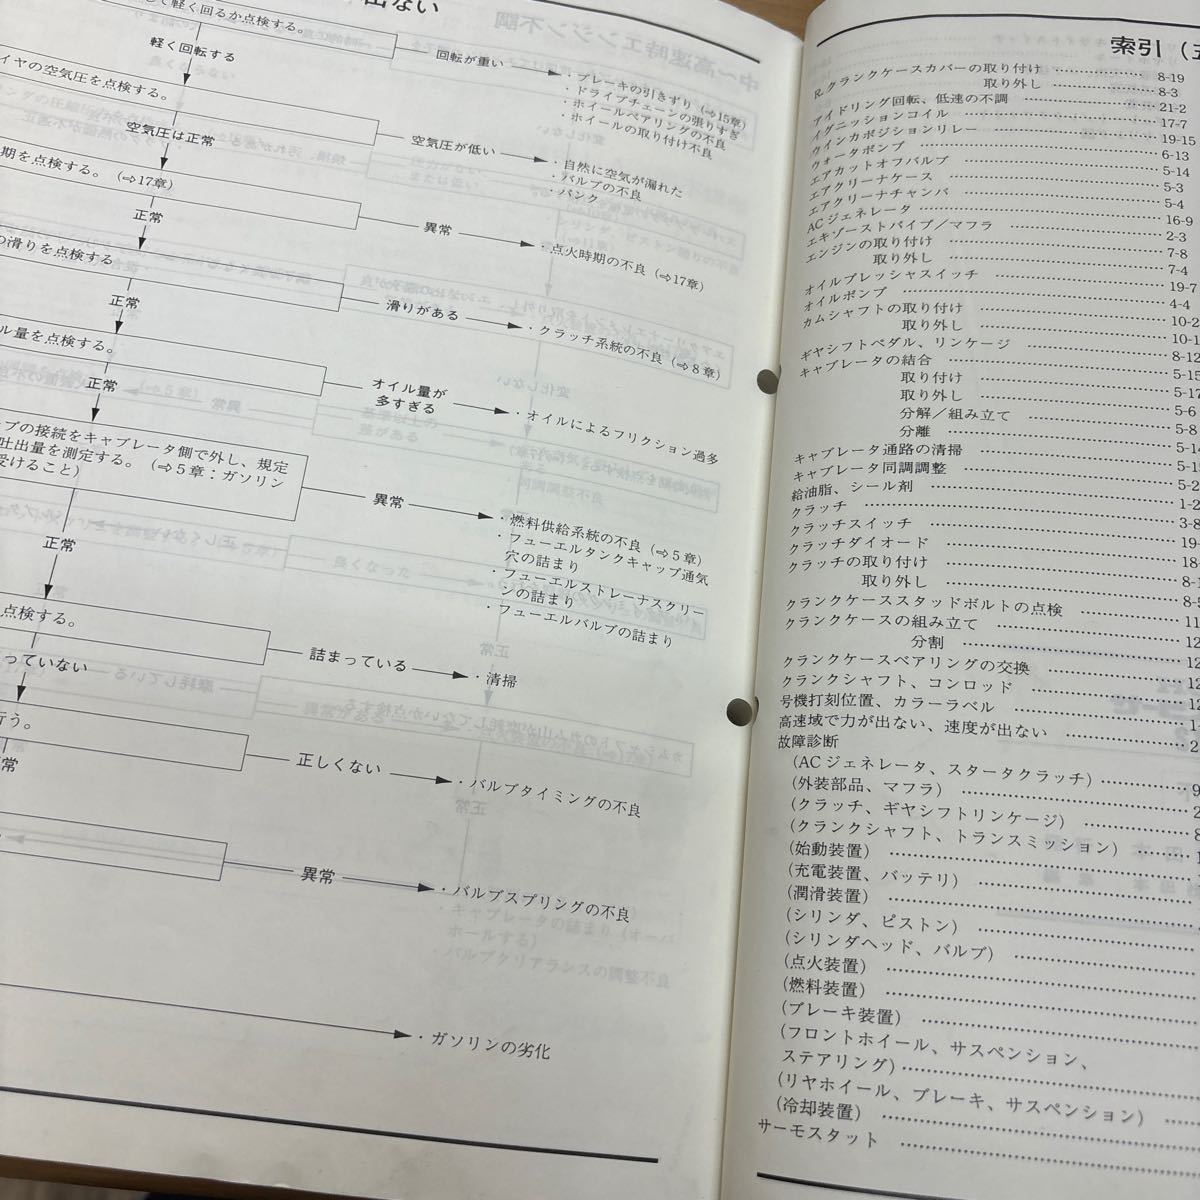 出ない
して軽く回るか点検する。
軽く回転する
回転が重い
・ブレーキの引きずり（⇨15章）
・ドライブチェーンの張りすぎ
・ホイールベアリングの不良
・ホイールの取り付け不良
イヤの空気圧を点検する。
空気圧は正常
空気圧が低い
・自然に空気が漏れた
・バルブの不良
・パンク
期を点検する。（⇨17章）
正常
異常
・点火時期の不良（⇨17章）
の滑りを点検する
正常
滑りがある
・クラッチ系統の不良（⇨8章）
ル量を点検する。
正常
オイル量が
多すぎる
・オイルによるフリクション過多
ブの接続をキャブレータ側で外し、規定
吐出量を測定する。（⇨5章：ガソリン
受けること）
正常
異常
・燃料供給系統の不良（⇨5章）
・フューエルタンクキャップ通気
穴の詰まり
・フューエルストレーナスクリー
ンの詰まり
・フューエルバルブの詰まり
点検する。
まっていない
詰まっている
・清掃
行う。
正しくない
・バルブタイミングの不良
異常
・バルブスプリングの不良
・ガソリンの劣化
索引
R.クランクケースカバーの取り付け 8-19
取り外し 8-3
アイドリング回転、低速の不調 21-2
イグニッションコイル 17-7
ウインカポジションリレー 19-15
ウォータポンプ 6-13
エアカットオフバルブ 5-14
エアクリーナケース 5-3
エアクリーナチャンバ 5-4
ACジェネレータ 16-9
エキゾーストパイプ／マフラ 2-3
エンジンの取り付け 7-8
取り外し 7-4
オイルプレッシャスイッチ 19-7
オイルポンプ 4-4
カムシャフトの取り付け 10-2
取り外し 10-1
ギヤシフトペダル、リンケージ 8-12
キャブレータの結合 5-15
取り付け 5-17
取り外し 5-6
分解／組み立て 5-8
分離 5-14
キャブレータ通路の清掃 5-1
キャブレータ同調調整 5-2
給油脂、シール剤 1-2
クラッチ 3-8
クラッチスイッチ 19-
クラッチダイオード 18-
クラッチの取り付け 8-1
取り外し 8-5
クランクケーススタッドボルトの点検 11
クランクケースの組み立て 12
分割 12
クランクケースベアリングの交換 12
クランクシャフト、コンロッド 12
号機打刻位置、カラーラベル 1-
高速域で力が出ない、速度が出ない 2
故障診断
（ACジェネレータ、スタータクラッチ） 9
（外装部品、マフラ） 2
（クラッチ、ギヤシフトリンケージ） 8
（クランクシャフト、トランスミッション） 1
（始動装置）
（充電装置、バッテリ）
（潤滑装置）
（シリンダ、ピストン）
（シリンダヘッド、バルブ）
（点火装置）
（燃料装置）
（ブレーキ装置）
（フロントホイール、サスペンション、
ステアリング）
（リヤホイール、ブレーキ、サスペンション）
（冷却装置）
サーモスタット